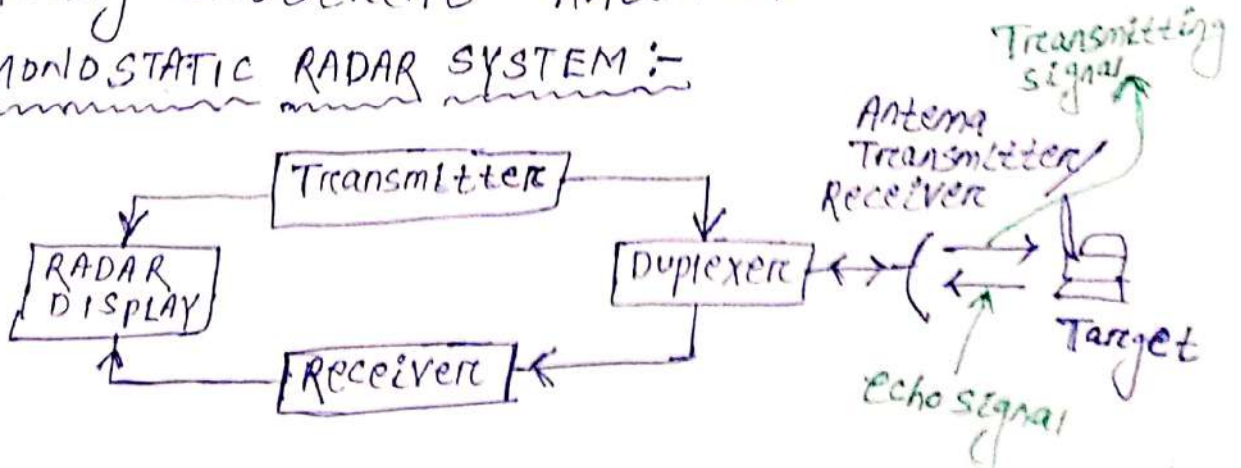 MONOSTATIC RADAR SYSTEM :-
Transmitting
signal
Antenna
Transmitter/
Receiver
Transmitter
RADAR
DISPLAY
Duplexer
Receiver
Target
echo signal